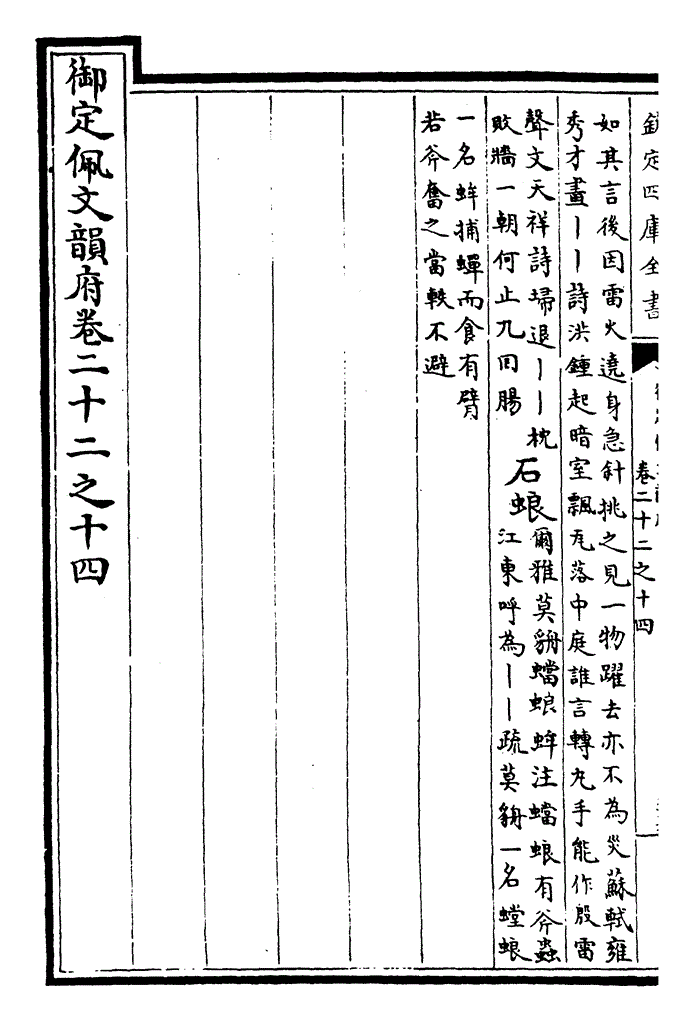 欽定四庫全書
卷二十二之十四
如其言後因雷火遶身急針挑之見一物躍去亦不為災蘇軾雍
秀才畫丨丨詩洪鍾起暗室飄瓦落中庭誰言轉丸手能作殷雷
聲文天祥詩埽退丨丨枕
敗牆一朝何止九回腸
石蜋
爾雅莫貈蟷蜋蛑注蟷蜋有斧蟲
江東呼為丨丨疏莫貈一名螳蜋
一名蛑捕蟬而食有臂
若斧奮之當軼不避
御定佩文韻府卷二十二之十四